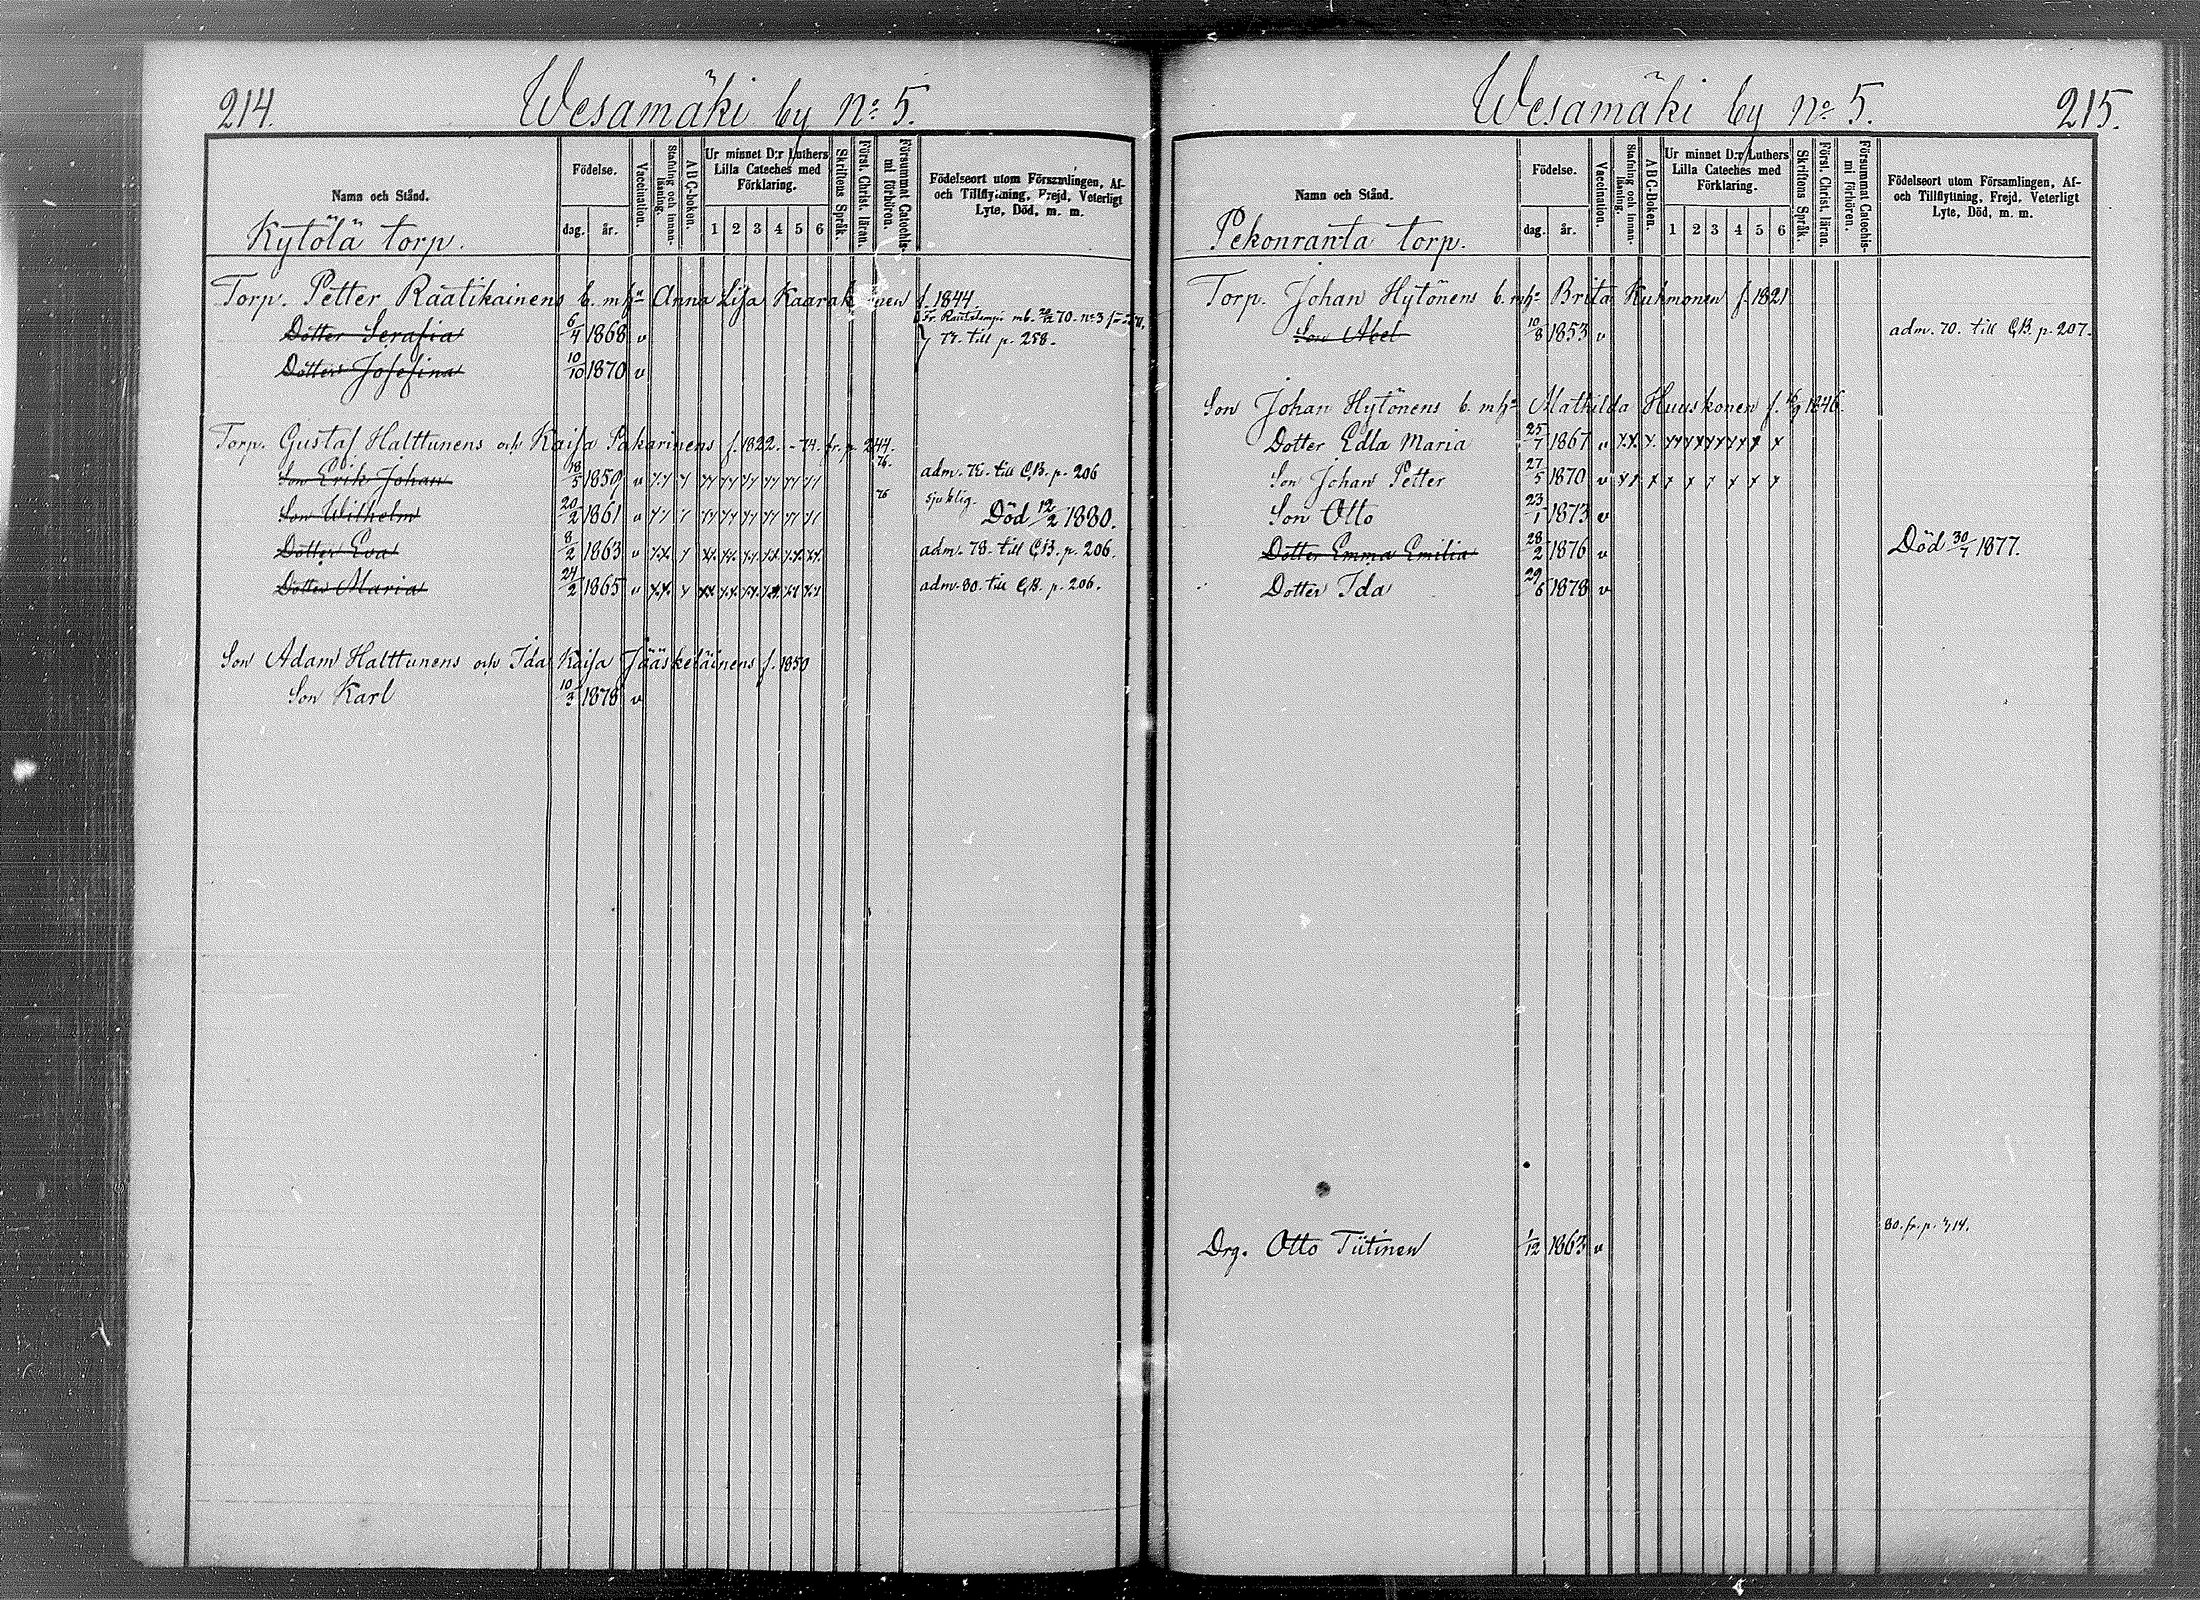 214.
Wesamäki by No 5.
Namn och Stånd.
Födelse.
dag.
år.
Vaccination.
Stafning och innanläsning.
A B C-boken.
Ur minnet D:r Luthers Lilla Cateches med Förklaring.
1 2 3 4 5 6
Skriftens Språk.
Först. Christ. läran.
Försummat Catechismi förhören.
Födelseort utom Församlingen, Af- och Tillflyttning, Frejd, Veterligt Lyte, Död, m. m.
Kytölä torp.
Torp. Petter Räätikainens b. m. ha Anna Lisa f. 1844.
Dotter Serafia 6/4 1868 v
77. till p. 258.
Dotter Josefina 10/10 1870 v
Torp. Gustaf Halttunens och Kaisa Pakarinens f. 1822. - 74. fr. p. 244.
Son Erik Johan 18/5 1859 v 76. adm. 75. till C.B. p. 206
Son Wilhelm 20/2 1861 v 76 sjuklig. Död 12/2 1880.
Dotter Eva 8/2 1863 v adm. 78. till C.B. p. 206.
Dotter Maria 24/2 1865 v adm. 80. till C.B. p. 206.
Son Adam Halttunens och Ida Kaisa Jääskeläinens f. 1850
Son Karl 10/3 1878 v
Wesamäki by No 5.
215.
Namn och Stånd.
Födelse.
dag.
år.
Vaccination.
Stafning och innanläsning.
A B C-Boken.
Ur minnet D:r Luthers Lilla Cateches med Förklaring.
1 2 3 4 5 6
Skriftens Språk.
Först. Christ. läran.
Försummat Catechismi förhören.
Födelseort utom Församlingen, Af- och Tillflyttning, Frejd, Veterligt Lyte, Död, m. m.
Pekonranta torp.
Torp. Johan Hytönens b. m. ha Brita Kuhmonen f. 1821
Son Abel 10/8 1853 v adm. 70. till C.B. p. 207.
Son Johan Hytönens b. m. ha Mathilda Huuskonen f. 16/9 1846.
Dotter Edla Maria 25/7 1867 v
Son Johan Petter 27/5 1870 v
Son Otto 23/1 1873 v
Dotter Emma Emilia 28/2 1876 v Död 30/7 1877.
Dotter Ida 29/6 1878 v
80. fr. p.
Drg. Otto Tiitinen 1/12 1863 v